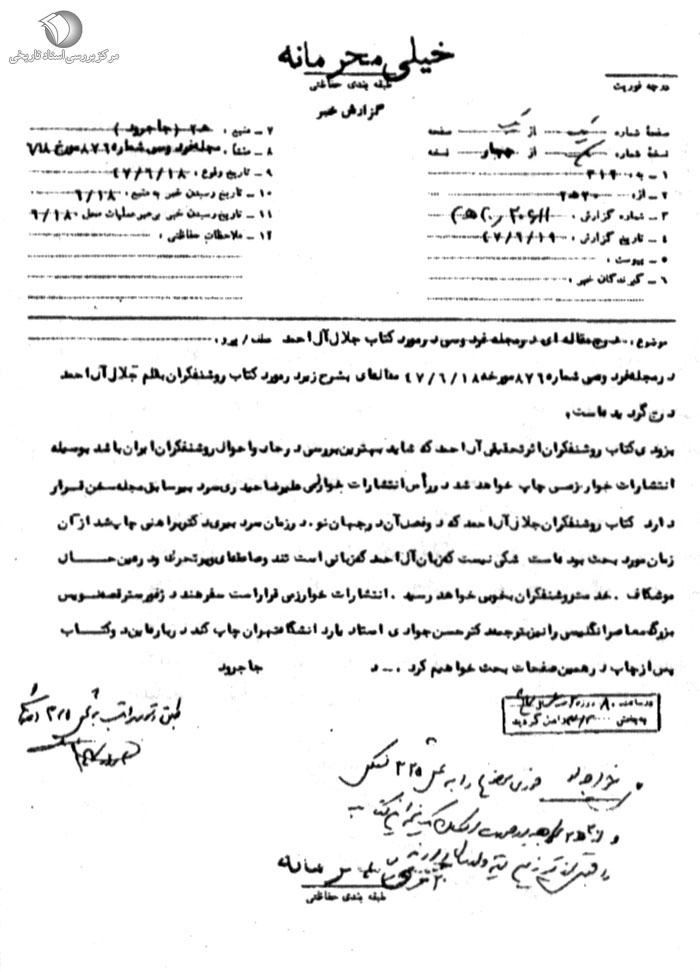 مرکز بررسی اسناد تاریخی
خیلی محرمانه
طبقه بندی حفاظتی
درجه فوریت
گزارش خبر
صفحه شماره یک از یک صفحه
نسخه شماره از چهار نسخه
۱ ـ به ۳۱۲
۲ ـ از ۲۰ ه ۲
۳ ـ شماره گزارش
۴ ـ تاریخ گزارش ۴۷/۶/۱۹
۵ ـ پیوست
۶ ـ گیرندگان خبر
۷ ـ منبع (جاجرود)
۸ ـ منشأ مجله فردوسی شماره ۸۷۶ مورخ
۹ ـ تاریخ وقوع ۴۷/۶/۱۸
۱۰ ـ تاریخ رسیدن خبر به منبع ۶/۱۸
۱۱ ـ تاریخ رسیدن خبر برهبر عملیات محل ۶/۱۸
۱۲ ـ ملاحظات حفاظتی
موضوع درج مقاله ای در مجله فردوسی در مورد کتاب جلال آل احمد عطف / پیرو
در مجله فردوسی شماره ۸۷۶ مورخه ۴۷/۶/۱۸ مقاله ای بشرح زیر در مورد کتاب روشنفکران بقلم جلال آل احمد
درج گردیده است.
بزودی کتاب روشنفکران اثر تحقیقی آل احمد که شاید بهترین بررسی در حال و احوال روشنفکران ایران باشد بوسیله
انتشارات خوارزمی چاپ خواهد شد در رأس انتشارات خوارزمی علیرضا حیدری سردبیر سابق مجله سخن قرار
دارد کتاب روشنفکران جلال آل احمد که دو فصل آن در جهان نو در زمان سردبیری دکتر براهنی چاپ شد از آن
زمان مورد بحث بوده است شکی نیست که زبان آل احمد که زبانی است تند و صاعقه ای و پر تحرک و در عین حال
موشکاف. خدمت روشنفکران بخوبی خواهد رسید. انتشارات خوارزمی قرار است سفر هند اثر فورستر قصه نویس
بزرگ معاصر انگلیسی را نیز بترجمه دکتر حسن جوادی استاد یار دانشگاه تهران چاپ کند درباره این دو کتاب
پس از چاپ در همین صفحات بحث خواهیم کرد. ... د جاجرود
در ساعت ۸ روز
به بخش گردید
طبق
۳۲۵
فوری
خیلی محرمانه
طبقه بندی حفاظتی